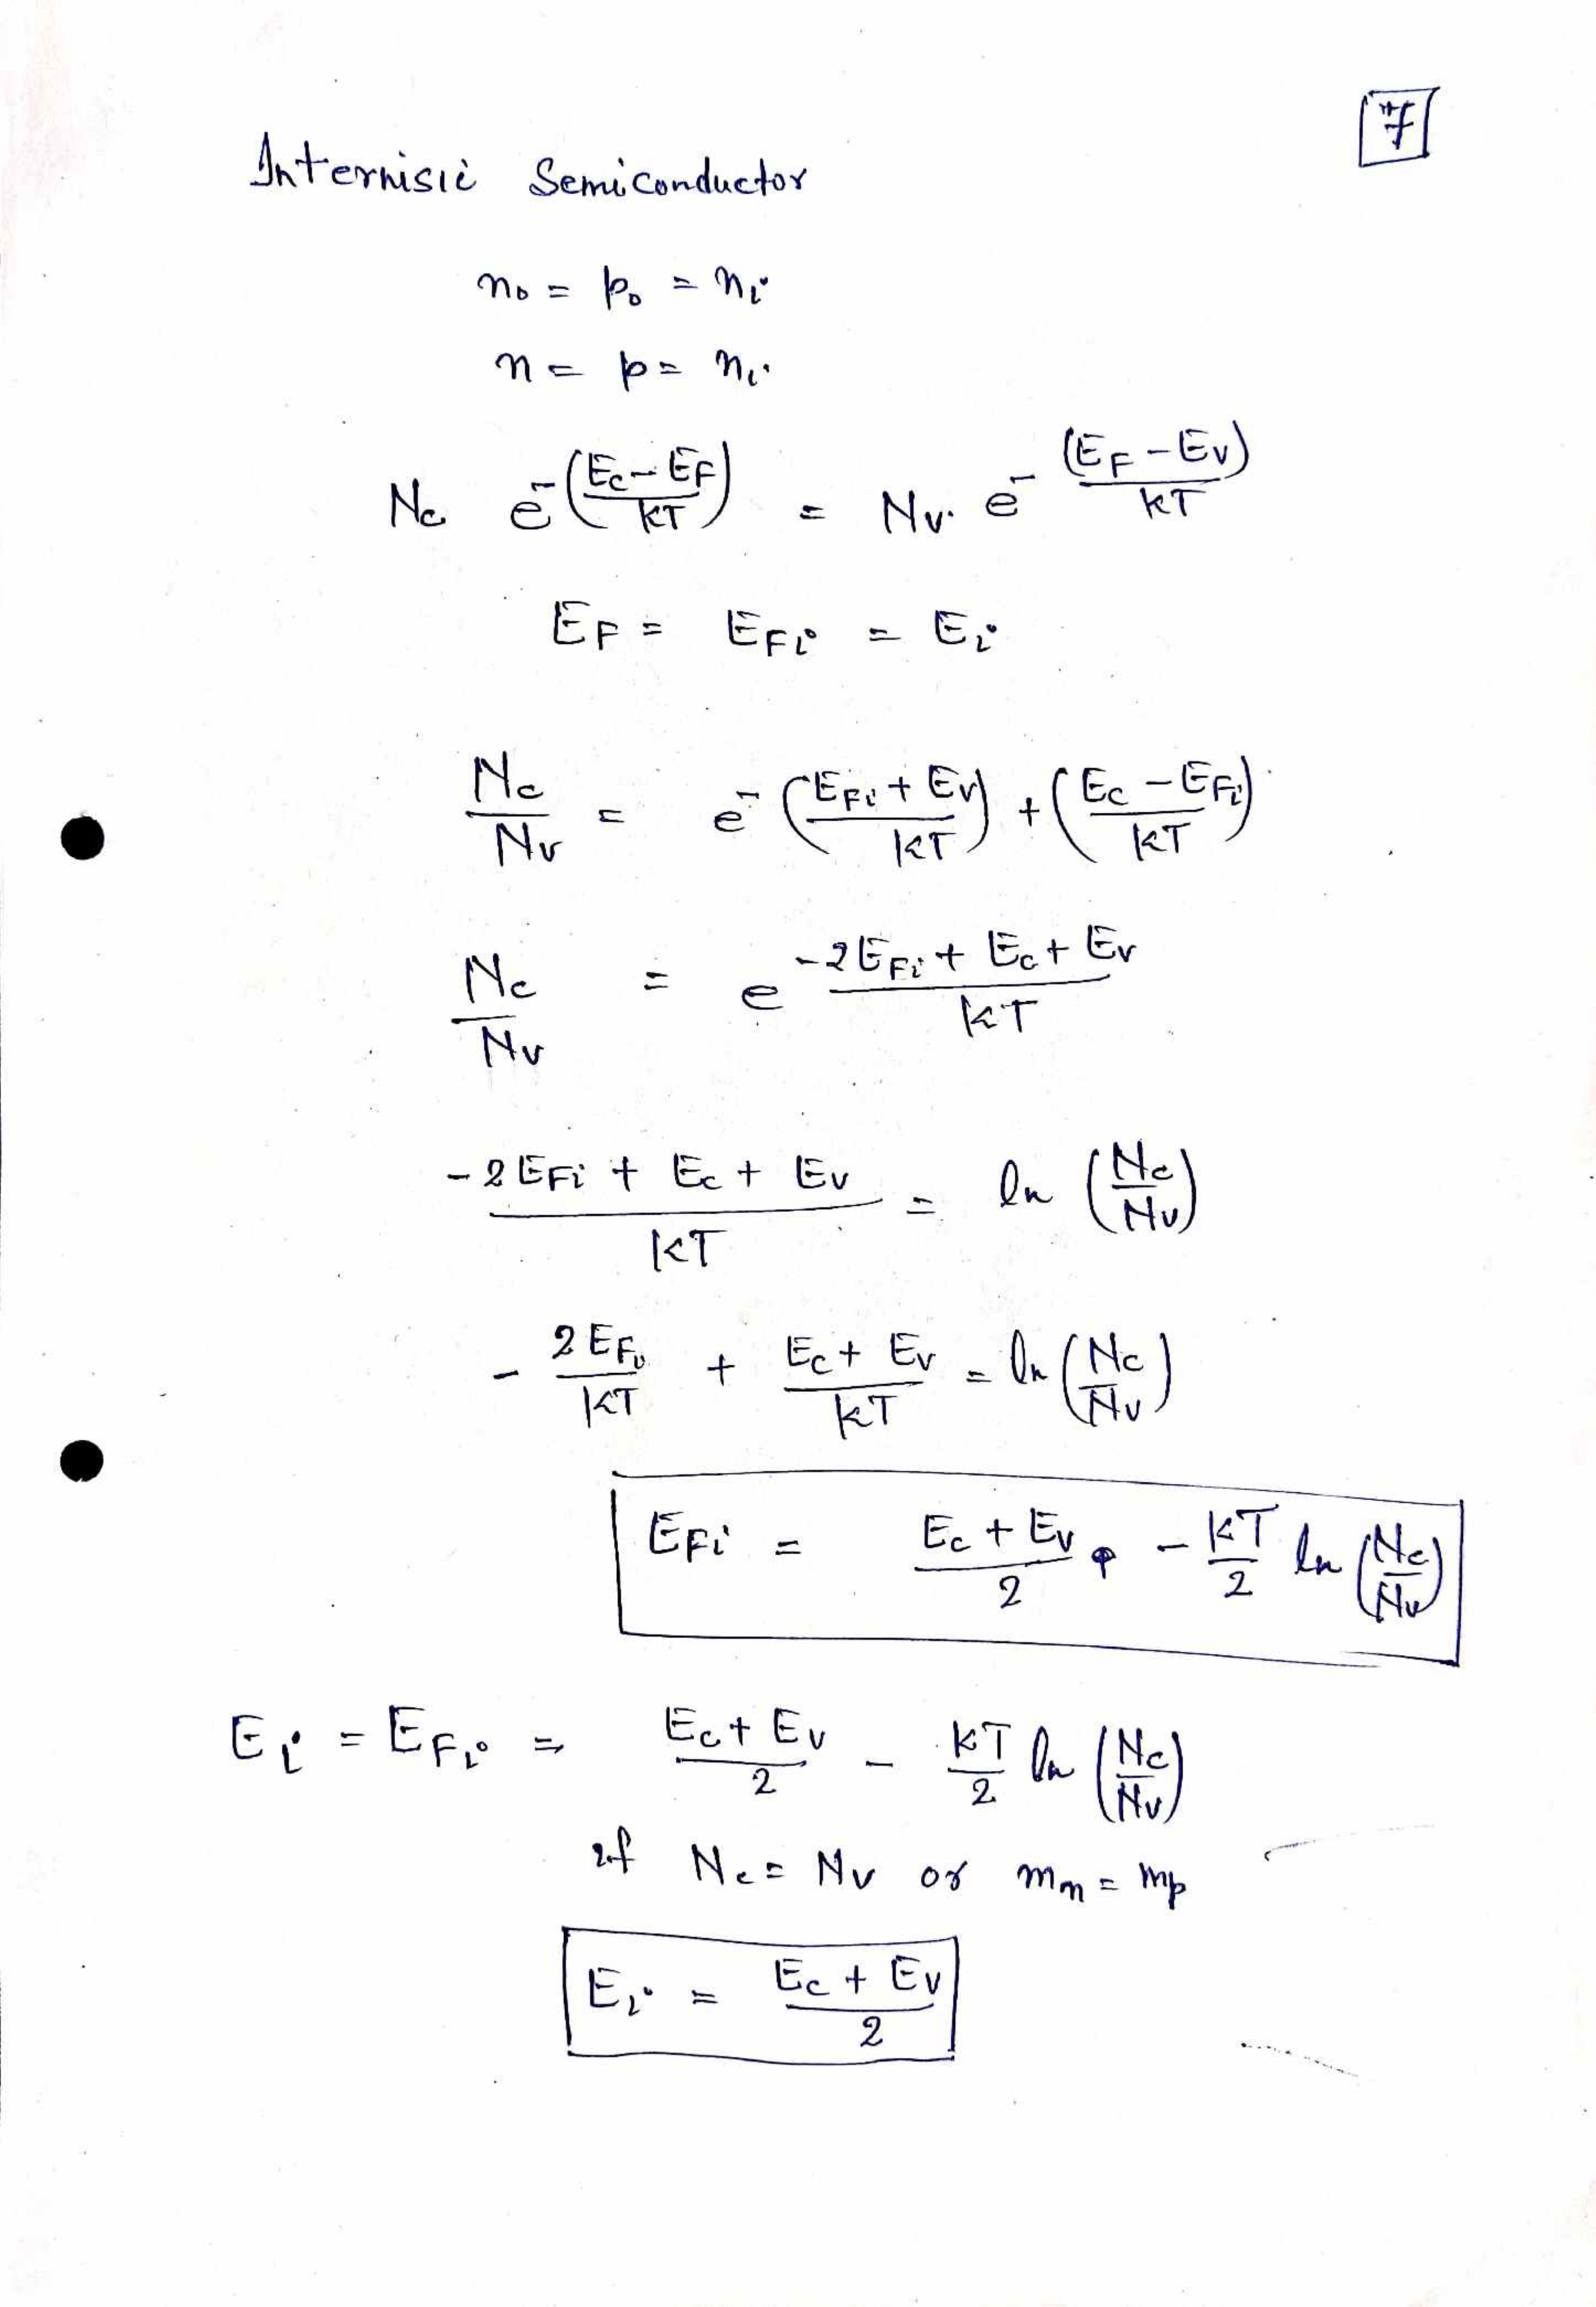 7
Internisic Semiconductor
n₀ = p₀ = nᵢ
n = p = nᵢ
Nc e^-((Ec - EF)/KT) = Nv. e^-((EF - Ev)/KT)
EF = EFi = Ei
Nc/Nv = e^-((EFi + Ev)/KT) + ((Ec - EFi)/KT)
Nc/Nv = e^(-2EFi + Ec + Ev)/KT
(-2EFi + Ec + Ev)/KT = ln (Nc/Nv)
- 2EFi/KT + (Ec + Ev)/KT = ln (Nc/Nv)
EFi = (Ec + Ev)/2 - KT/2 ln (Nc/Nv)
Ei = EFi = (Ec + Ev)/2 - KT/2 ln (Nc/Nv)
if Nc = Nv or mn = mp
Ei = (Ec + Ev)/2